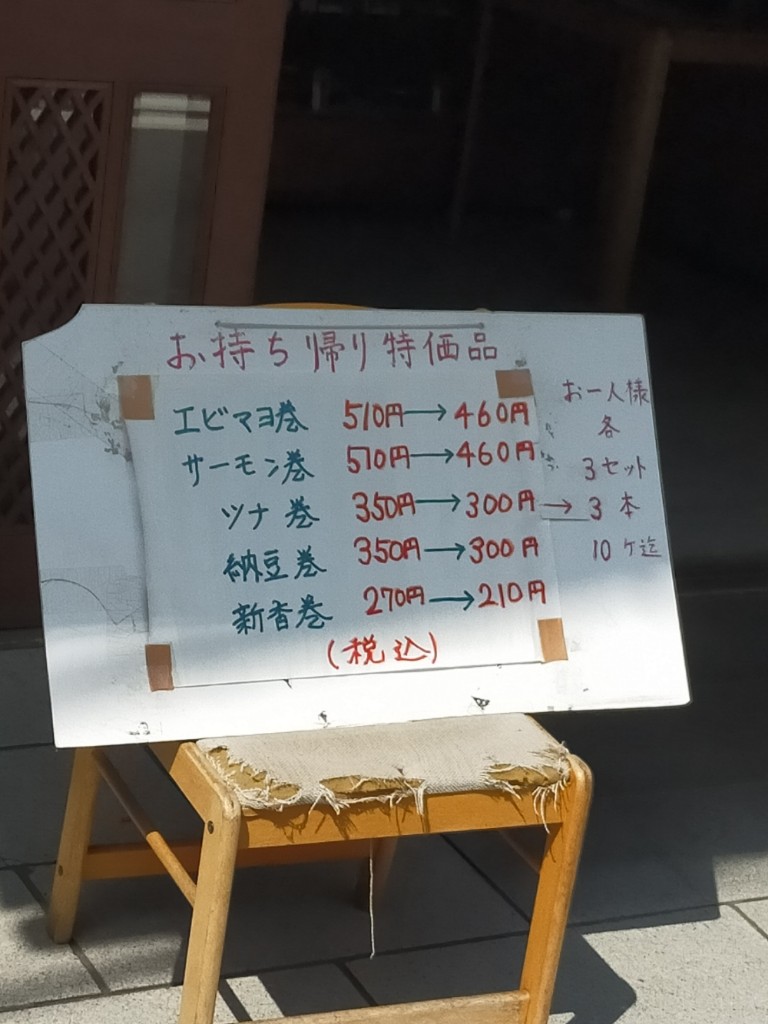 お持ち帰り特価品
エビマヨ巻 510円→460円
サーモン巻 510円→460円
ツナ巻 350円→300円→
納豆巻 350円→300円
新香巻 270円→210円
(税込)
お一人様
各
3セット
3本
10ケ迄